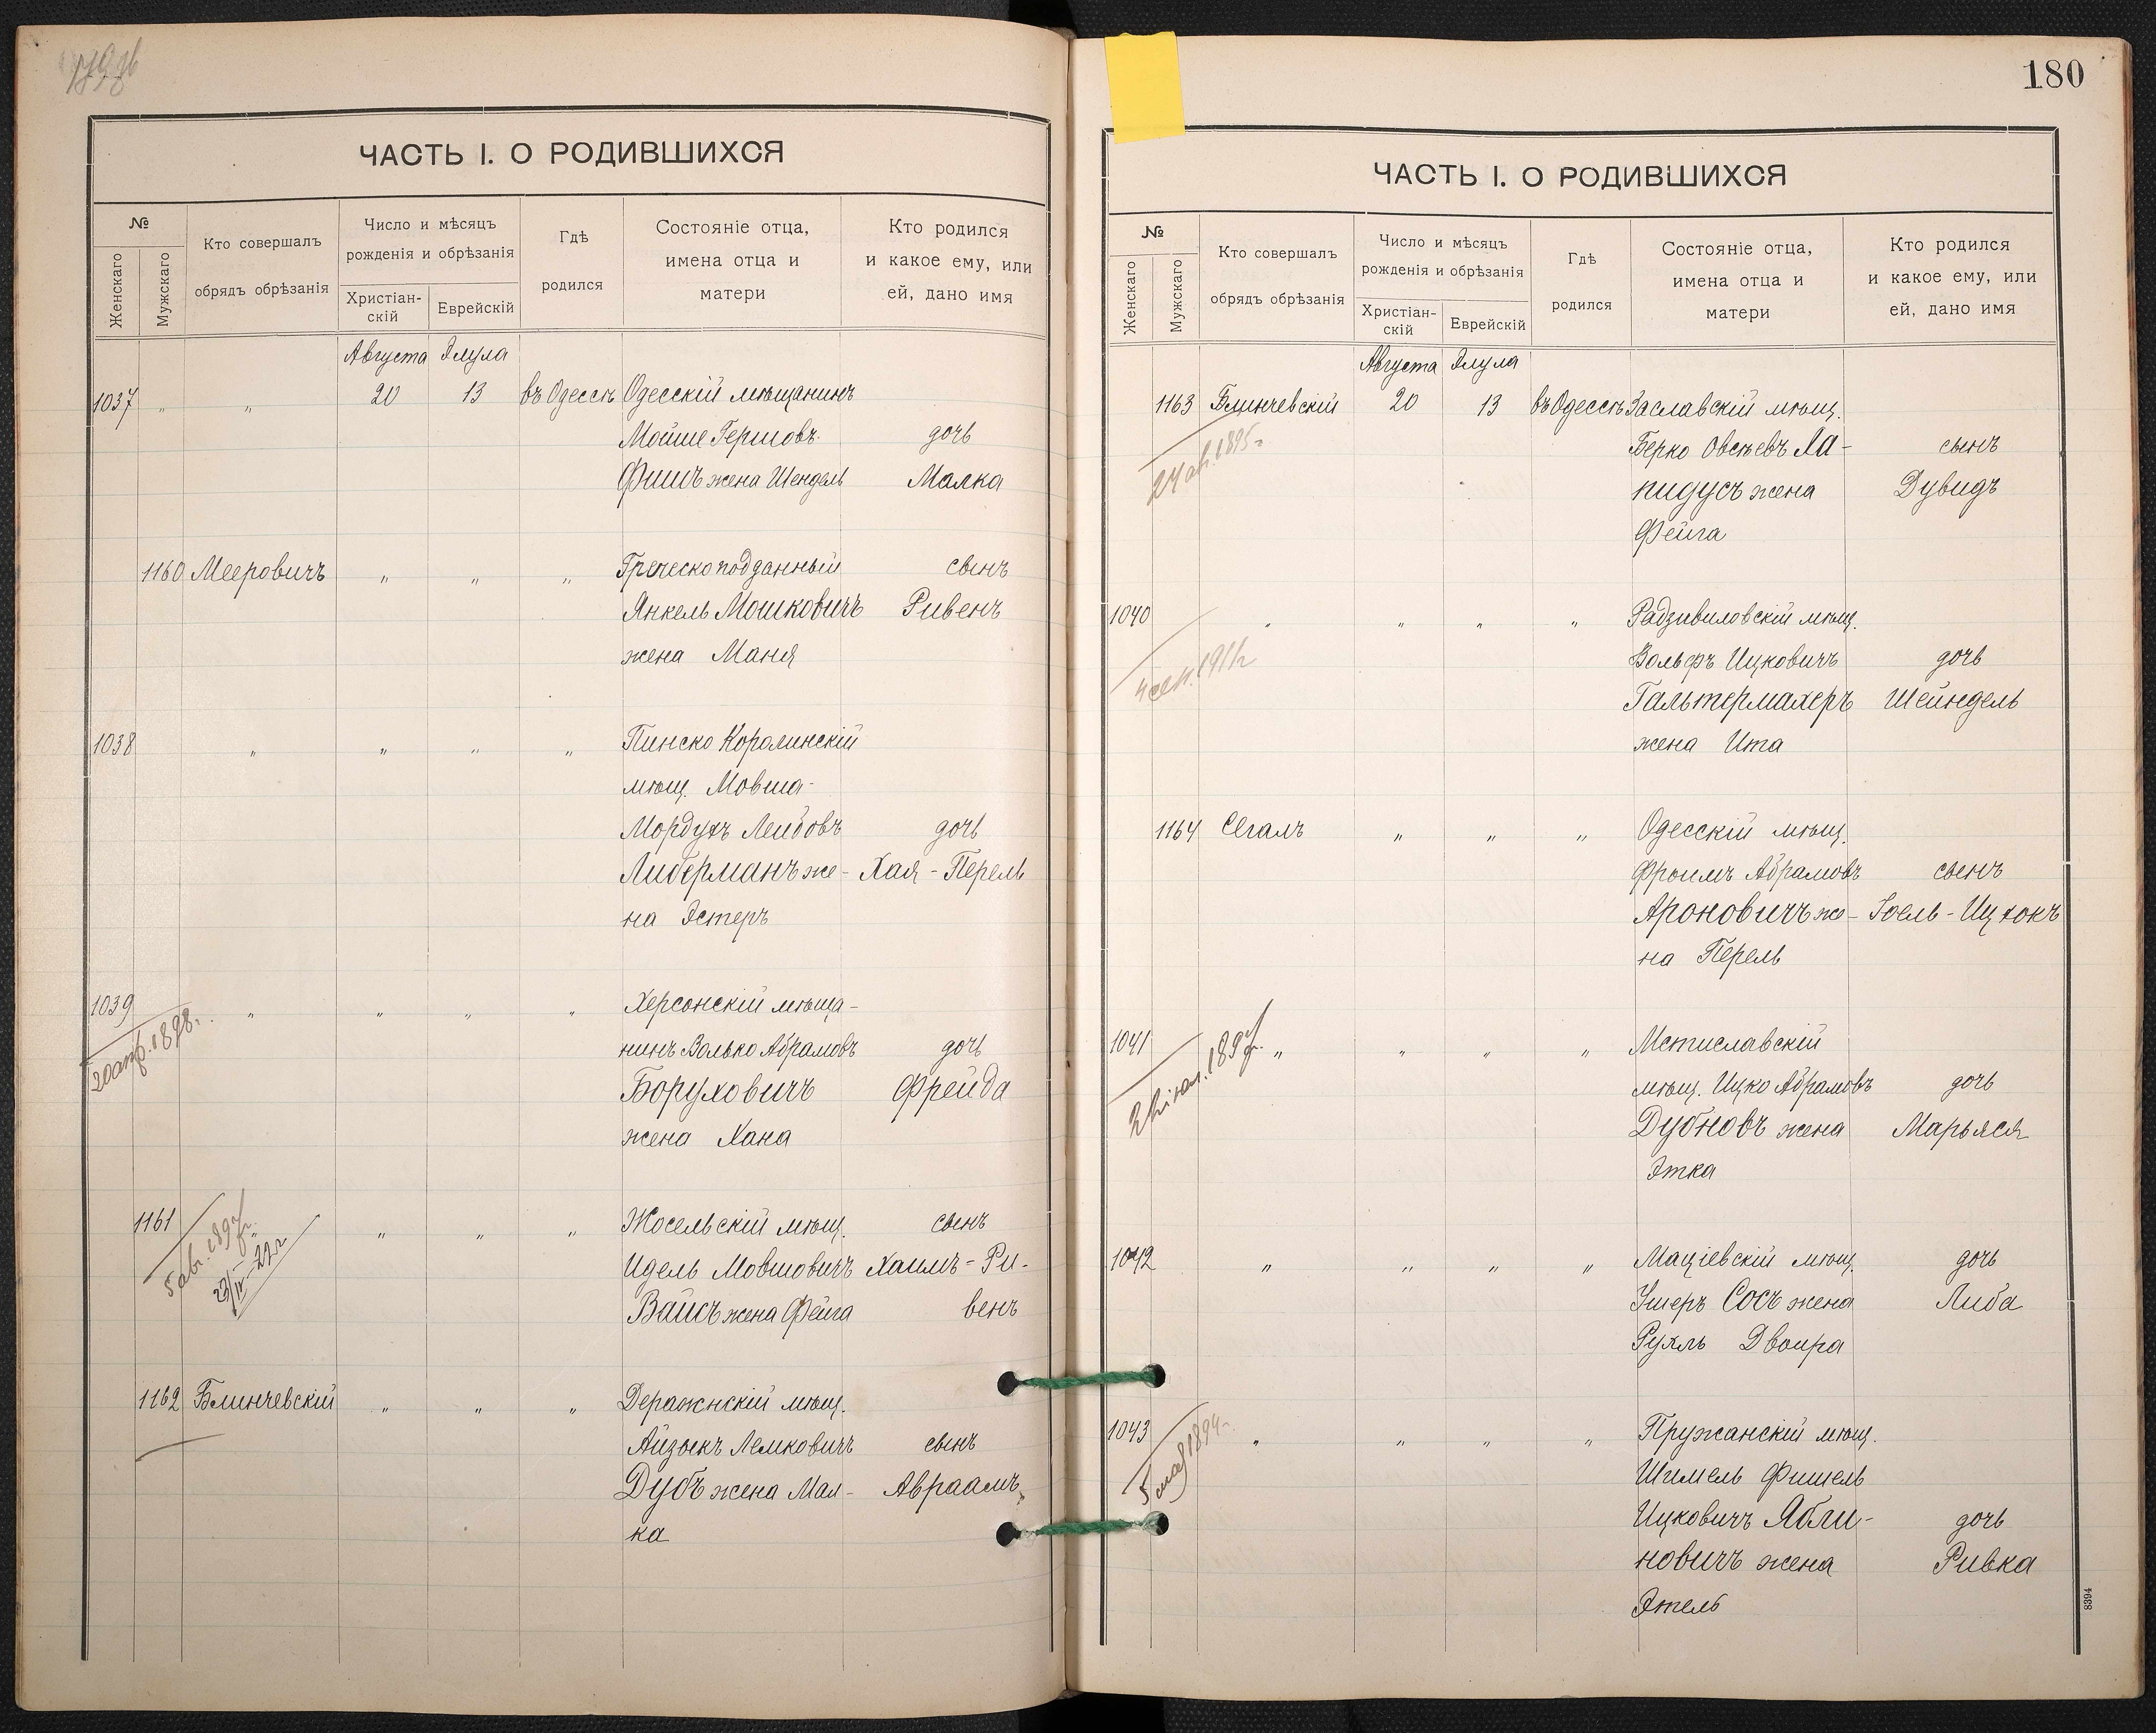 ЧАСТЬ I. О РОДИВШИХСЯ
№
Женскаго
Мужскаго
Кто совершалъ
обрядъ обрѣзанія
Число и мѣсяцъ
рожденія и обрѣзанія
Христіан-
скій
Еврейскій
Гдѣ
родился
Состояніе отца,
имена отца и
матери
Кто родился
и какое ему, или
ей, дано имя
Августа Элула
1037 " " 20 13 въ Одессѣ Одесскій мѣщанинъ
Мойше Гершовъ дочь
Фишъ жена Шендель Малка
1160 Мееровичъ " " " Греческоподданный сынъ
Янкель Мошковичъ Ривенъ
жена Маня
1038 " " " " Пинско Каролинскій
мѣщ. Мовша-
Мордухъ Лейбовъ дочь
Либерманъ же- Хая-Перель
на Эстеръ
1039 " " " " Херсонскій мѣща-
20 апр. 1898 г.
нинъ Волько Абрамовъ дочь
Боруховичъ Фрейда
жена Хана
1161 " " " " Жосельскій мѣщ. сынъ
5 авг. 1897 г.
Идель Мовшовичъ Хаимъ-Ри-
Вайсъ жена Фейга венъ
1162 Блинчевскій " " " Деражнскій мѣщ.
Айзыкъ Лемковичъ сынъ
Дубъ жена Мал- Авраамъ
ка
180
ЧАСТЬ I. О РОДИВШИХСЯ
№
Женскаго
Мужскаго
Кто совершалъ
обрядъ обрѣзанія
Число и мѣсяцъ
рожденія и обрѣзанія
Христіан-
скій
Еврейскій
Гдѣ
родился
Состояніе отца,
имена отца и
матери
Кто родился
и какое ему, или
ей, дано имя
Августа Элула
1163 Блинчевскій 20 13 въ Одессѣ Заславскій мѣщ.
Берко Овсѣевъ Ла- сынъ
24 ав. 1895 г.
пидусъ жена Дувидъ
Фейга
1040 " " " " Радзивиловскій мѣщ.
4 сен. 1911 г.
Вольфъ Ицковичъ дочь
Гальтермахеръ Шейндель
жена Ита
1164 Сегалъ " " " Одесскій мѣщ.
Фроимъ Абрамовъ сынъ
Ароновичъ же- Іоель-Ицхокъ
на Перель
1041 " " " " Мстиславскій
мѣщ. Ицко Абрамовъ дочь
Дубновъ жена Марьяся
Этка
1042 " " " " Маціевскій мѣщ. дочь
Ушеръ Сосъ жена Либа
Рухль Двоира
1043 " " " " Пружанскій мѣщ.
5 мая 1894 г.
Шимель Фишель
Ицковичъ Ябли- дочь
новичъ жена Ривка
Этель
8394